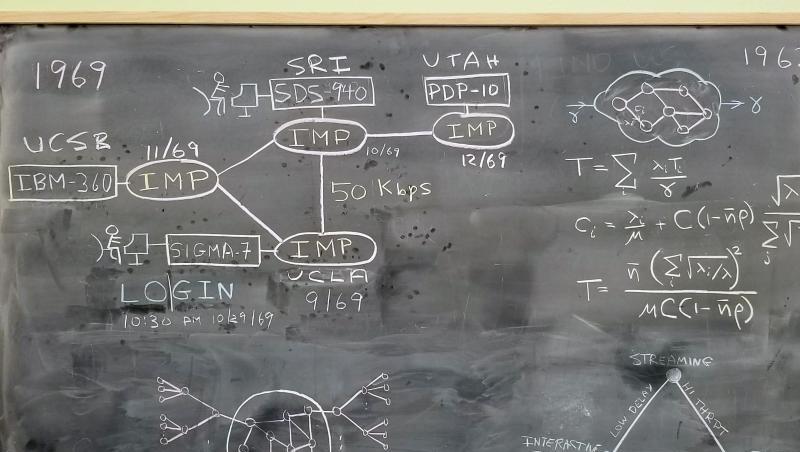 1969
SRI
SDS-940
IMP
10/69
UTAH
PDP-10
IMP
12/69
UCSB
IBM-360
11/69
IMP
50 Kbps
SIGMA-7
IMP
UCLA
9/69
LO|GIN
10:30 PM 10/29/69
196
γ
γ
T = Σ_i λ_i T_i / γ
C_i = λ_i / μ + C(1-n̄ρ) √λ / Σ_j √
T = n̄ (Σ_i √(λ_i/λ))² / μC(1-n̄ρ)
STREAMING
LOW DELAY
HI THRPT
INTERACTIVE